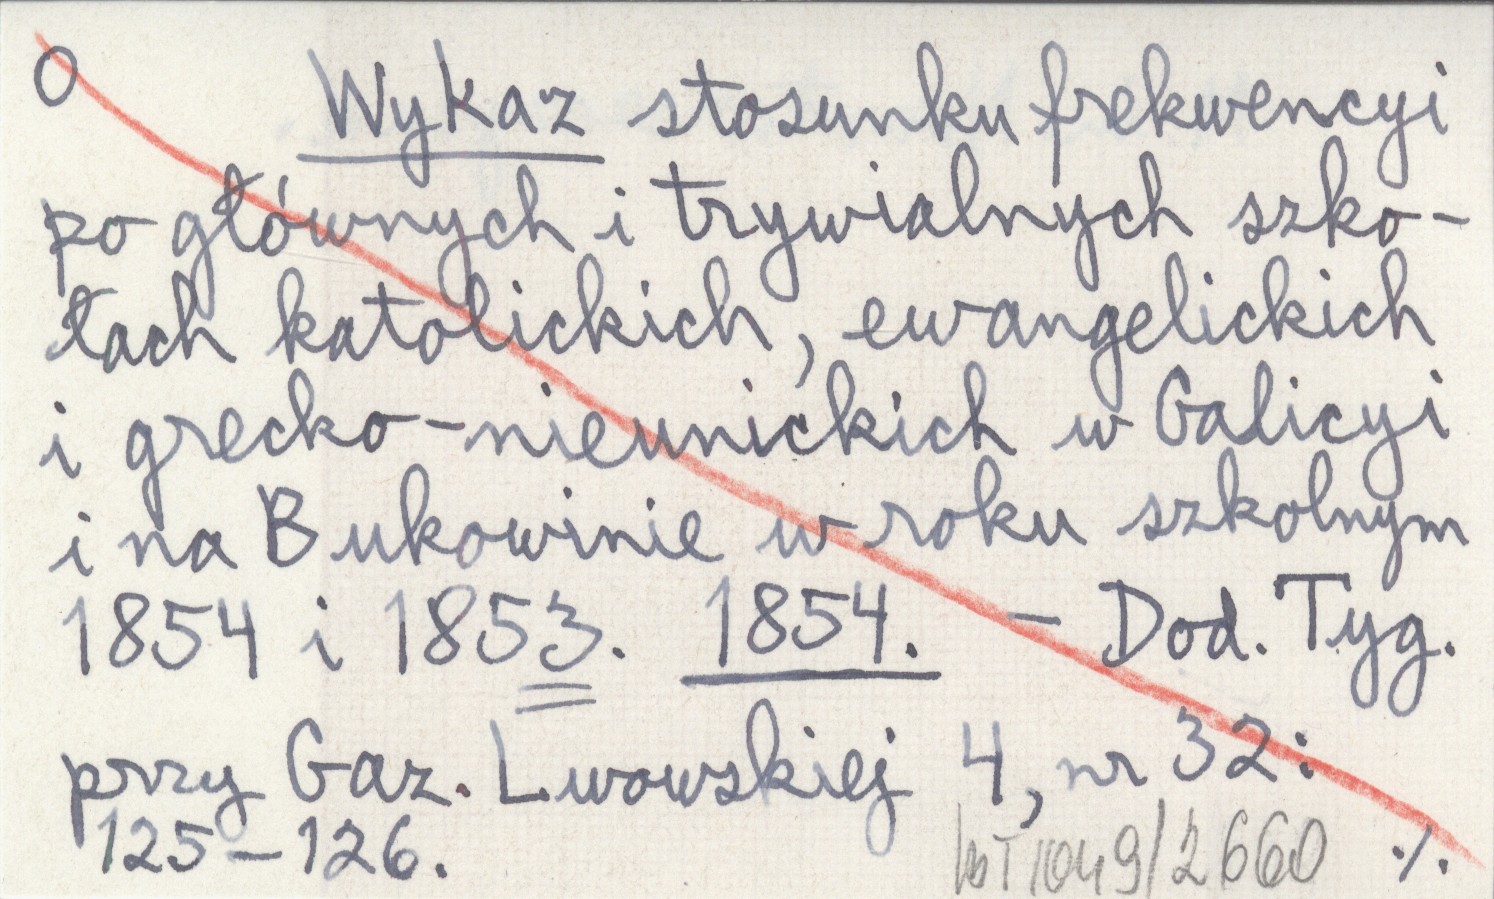 O Wykaz stosunku frekwencyi
po głównych i trywialnych szko-
łach katolickich, ewangelickich
i grecko-nieunickich w Galicyi
i na Bukowinie w roku szkolnym
1854 i 1853. 1854. - Dod. Tyg.
przy Gaz. Lwowskiej 4, nr 32:
125-126.
1049/2660 ./.